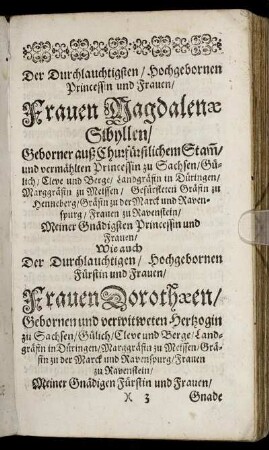 Der Durchlauchtigsten / Hochgebornen
Princessin und Frauen /
Frauen Magdalenæ
Sibyllen /
Geborner auß Churfürstlichem Stam̃ /
und vermählten Princessin zu Sachsen / Gü-
lich / Cleve und Berge / Landgräfin in Düringen /
Marggräfin zu Meissen / Gefürsteten Gräfin zu
Henneberg / Gräfin zu der Marck und Raven-
spurg / Frauen zu Ravenstein /
Meiner Gnädigsten Princessin und
Frauen /
Wie auch
Der Durchlauchtigen / Hochgebornen
Fürstin und Frauen /
Frauen Dorothæen /
Gebornen und verwitweten Hertzogin
zu Sachsen / Gülich / Cleve und Berge / Land-
gräfin in Düringen / Marggräfin zu Meissen / Grä-
fin zu der Marck und Ravenspurg / Frauen
zu Ravenstein /
Meiner Gnädigen Fürstin und Frauen /
X 3 Gnade